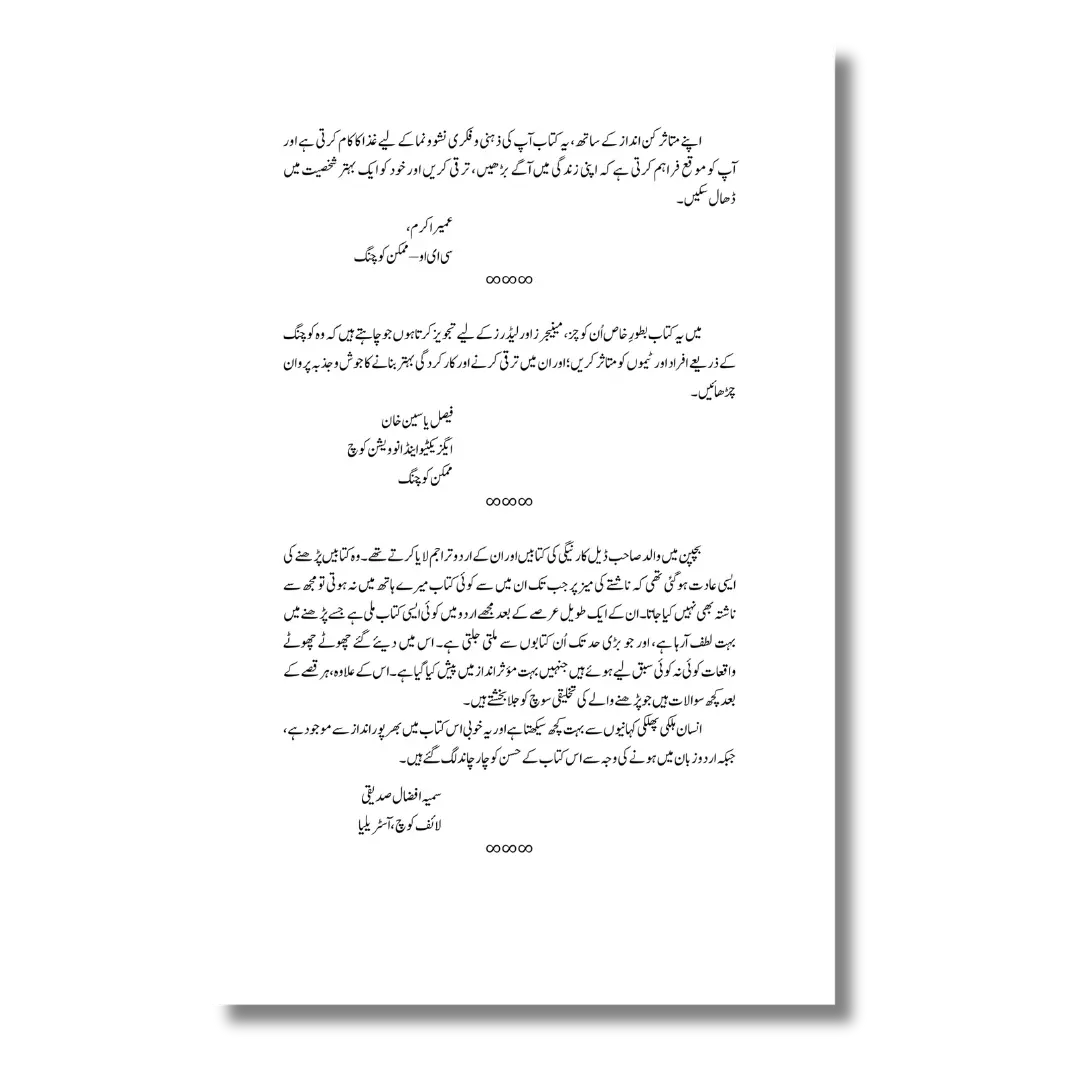 اپنے متاثر کن انداز کے ساتھ، یہ کتاب آپ کی ذہنی و فکری نشوونما کے لیے غذا کا کام کرتی ہے اور
آپ کو موقع فراہم کرتی ہے کہ اپنی زندگی میں آگے بڑھیں، ترقی کریں اور خود کو ایک بہتر شخصیت میں
ڈھال سکیں۔
عمیر اکرم،
سی ای او – ممکن کوچنگ
∞∞∞
میں یہ کتاب بطورِ خاص اُن کوچز، مینیجرز اور لیڈرز کے لیے تجویز کرتا ہوں جو چاہتے ہیں کہ وہ کوچنگ
کے ذریعے افراد اور ٹیموں کو متاثر کریں؛ اور ان میں ترقی کرنے اور کارکردگی بہتر بنانے کا جوش و جذبہ پروان
چڑھائیں۔
فیصل یاسین خان
ایگزیکٹیو اینڈ انوویشن کوچ
ممکن کوچنگ
∞∞∞
بچپن میں والد صاحب ڈیل کارنیگی کی کتابیں اور ان کے اردو تراجم لایا کرتے تھے۔ وہ کتابیں پڑھنے کی
ایسی عادت ہو گئی تھی کہ ناشتے کی میز پر جب تک ان میں سے کوئی کتاب میرے ہاتھ میں نہ ہوتی تو مجھ سے
ناشتہ بھی نہیں کیا جاتا۔ ان کے ایک طویل عرصے کے بعد مجھے اردو میں کوئی ایسی کتاب ملی ہے جسے پڑھنے میں
بہت لطف آرہا ہے، اور جو بڑی حد تک اُن کتابوں سے ملتی جلتی ہے۔ اس میں دیئے گئے چھوٹے چھوٹے
واقعات کوئی نہ کوئی سبق لیے ہوئے ہیں جنہیں بہت مؤثر انداز میں پیش کیا گیا ہے۔ اس کے علاوہ، ہر قصے کے
بعد کچھ سوالات ہیں جو پڑھنے والے کی تخلیقی سوچ کو جلا بخشتے ہیں۔
انسان ہلکی پھلکی کہانیوں سے بہت کچھ سیکھتا ہے اور یہ خوبی اس کتاب میں بھرپور انداز سے موجود ہے،
جبکہ اردو زبان میں ہونے کی وجہ سے اس کتاب کے حسن کو چار چاند لگ گئے ہیں۔
سمیہ افضال صدیقی
لائف کوچ، آسٹریلیا
∞∞∞